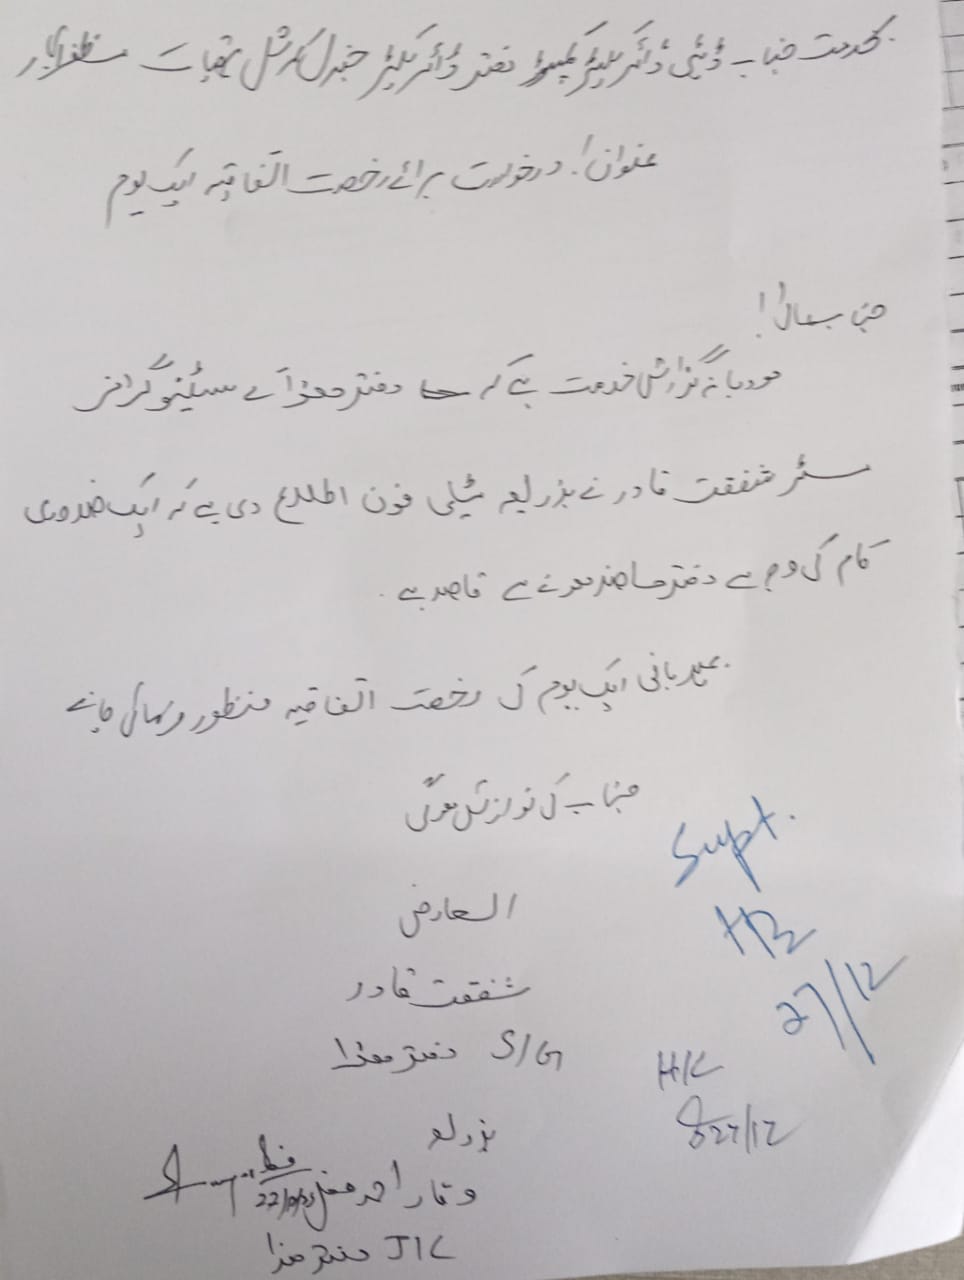 بخدمت جناب ڈپٹی ڈائریکٹر دفتر ڈائریکٹر جنرل مظفرآباد
عنوان! درخواست برائے رخصت اتفاقیہ ایک یوم
جناب عالی!
مودبانہ گزارش خدمت ہے کہ دفتر ھذا کے سٹینوگرافر
مسٹر شفقت قادر نے بذریعہ ٹیلی فون اطلاع دی ہے کہ ایک ضروری
کام کی وجہ سے دفتر حاضر ہونے سے قاصر ہے۔
مہربانی ایک یوم کی رخصت اتفاقیہ منظور فرمائی جائے
جناب کی نوازش ہوگی
Supt.
العارض
شفقت قادر
27/12
S/G دفتر ھذا
H/C
27/12
بذریعہ
وقار احمد مغل
J/C دفتر ھذا